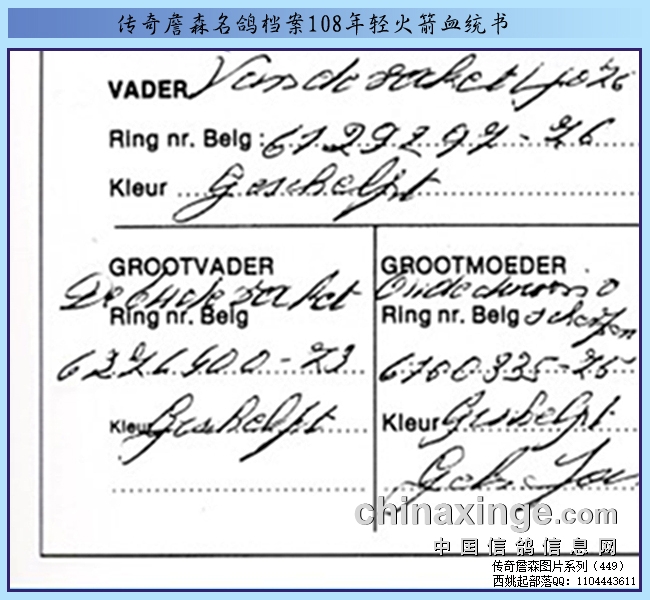 传奇詹森名鸽档案108年轻火箭血统书
VADER Van de raket
Ring nr. Belg: 6129297-76
Kleur Geschelpt
GROOTVADER
De oude raket
Ring nr. Belg
6371400-73
Kleur Geschelpt
GROOTMOEDER
Oude
Ring nr. Belg
6160335-75
Kleur Geschelpt
chinaxinge.com
中国信鸽信息网
传奇詹森图片系列（449）
西姚起部落QQ：1104443611